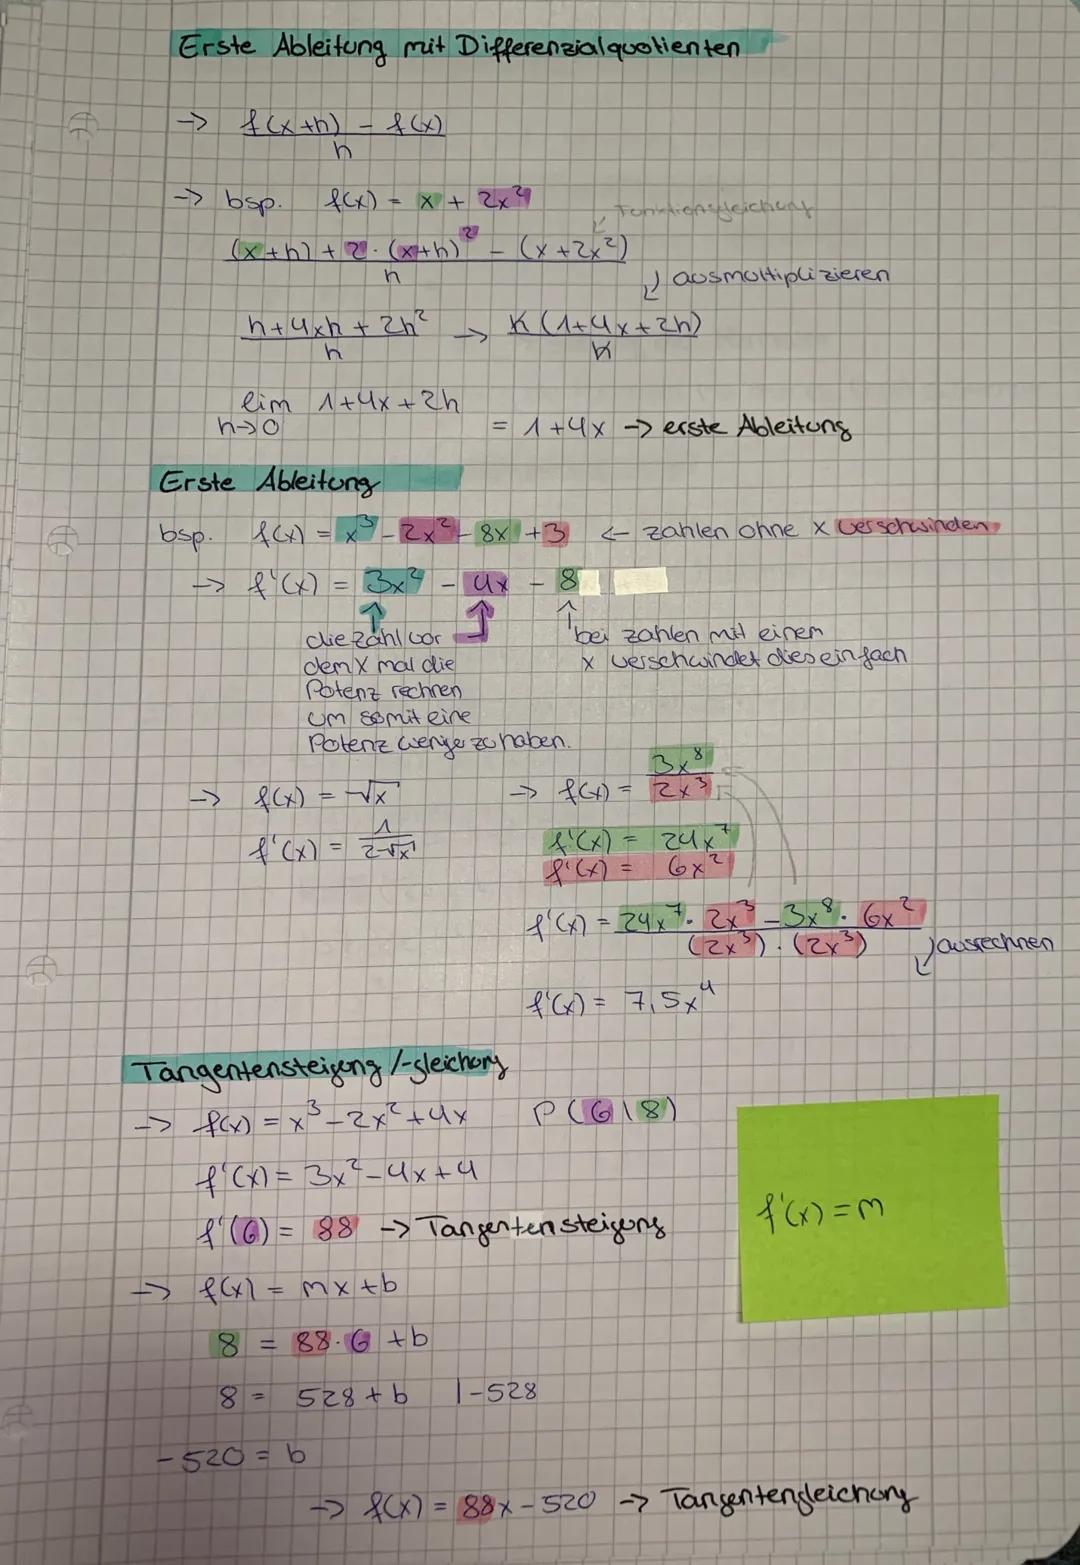 Erste Ableitung mit Differenzialquotienten
→ f(x+h) - f(x)
h
→ bsp. f(x) = x + 2x²
Funktionsgleichung
(x+h) + 2·(x+h)² - (x+2x²)
h
ausmultiplizieren
h+4xh+2h² → h(1+4x+2h)
h h
lim 1+4x+2h
h→0 = 1+4x → erste Ableitung
Erste Ableitung
bsp. f(x) = x³ - 2x² - 8x + 3 ← zahlen ohne x verschwinden
→ f'(x) = 3x² - 4x - 8
die zahl vor
dem x mal die
Potenz rechnen
um somit eine
Potenz wenige zu haben.
bei zahlen mit einem
x verschwindet dies einfach
→ f(x) = √x
f'(x) = 1
2√x
→ f(x) = 3x⁸
2x³
f'(x) = 24x⁷
f'(x) = 6x²
f'(x) = 24x⁷ · 2x³ - 3x⁸ · 6x²
(2x³) · (2x³)
ausrechnen
f'(x) = 7,5x⁴
Tangentensteigung /-gleichung
→ f(x) = x³ - 2x² + 4x P(6|8)
f'(x) = 3x² - 4x + 4
f'(6) = 88 → Tangentensteigung
f'(x) = m
→ f(x) = mx + b
8 = 88·6 + b
8 = 528 + b |-528
-520 = b
→ f(x) = 88x - 520 → Tangentengleichung